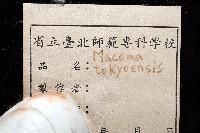 省立臺北師範專科學校
品名： Macoma
tokyoensis
製作者：
年 月 日